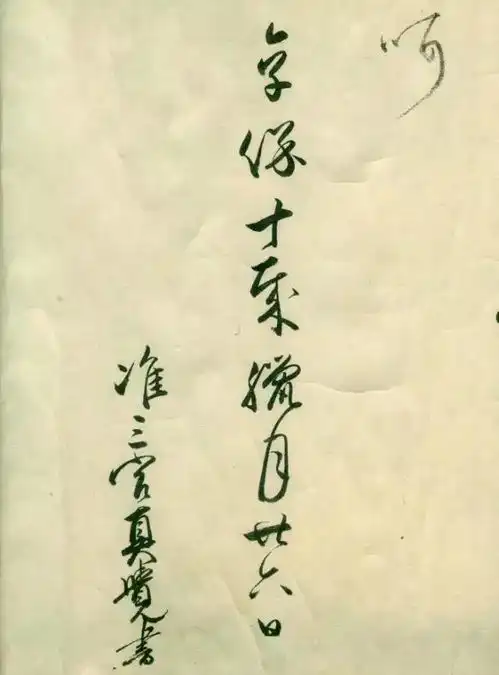 享保十載臘月廿六日
准三宮真覺書